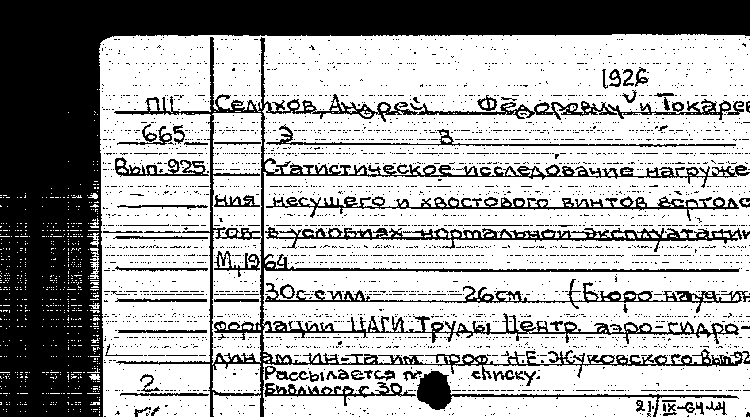 1926
ПII Селихов, Андрей Федорович и Токарев
665 Э В
Вып. 925 Статистическое исследование нагруже-
ния несущего и хвостового винтов вертоле
тов в условиях нормальной эксплуатации
М., 1964.
30с. с илл. 26см. (Бюро науч. ин
формации ЦАГИ. Труды Центр. аэро-гидро-
динам. ин-та им. проф. Н.Е. Жуковского. Вып. 92
Рассылается списку.
2 Библиогр. с. 30.
21/IX-64